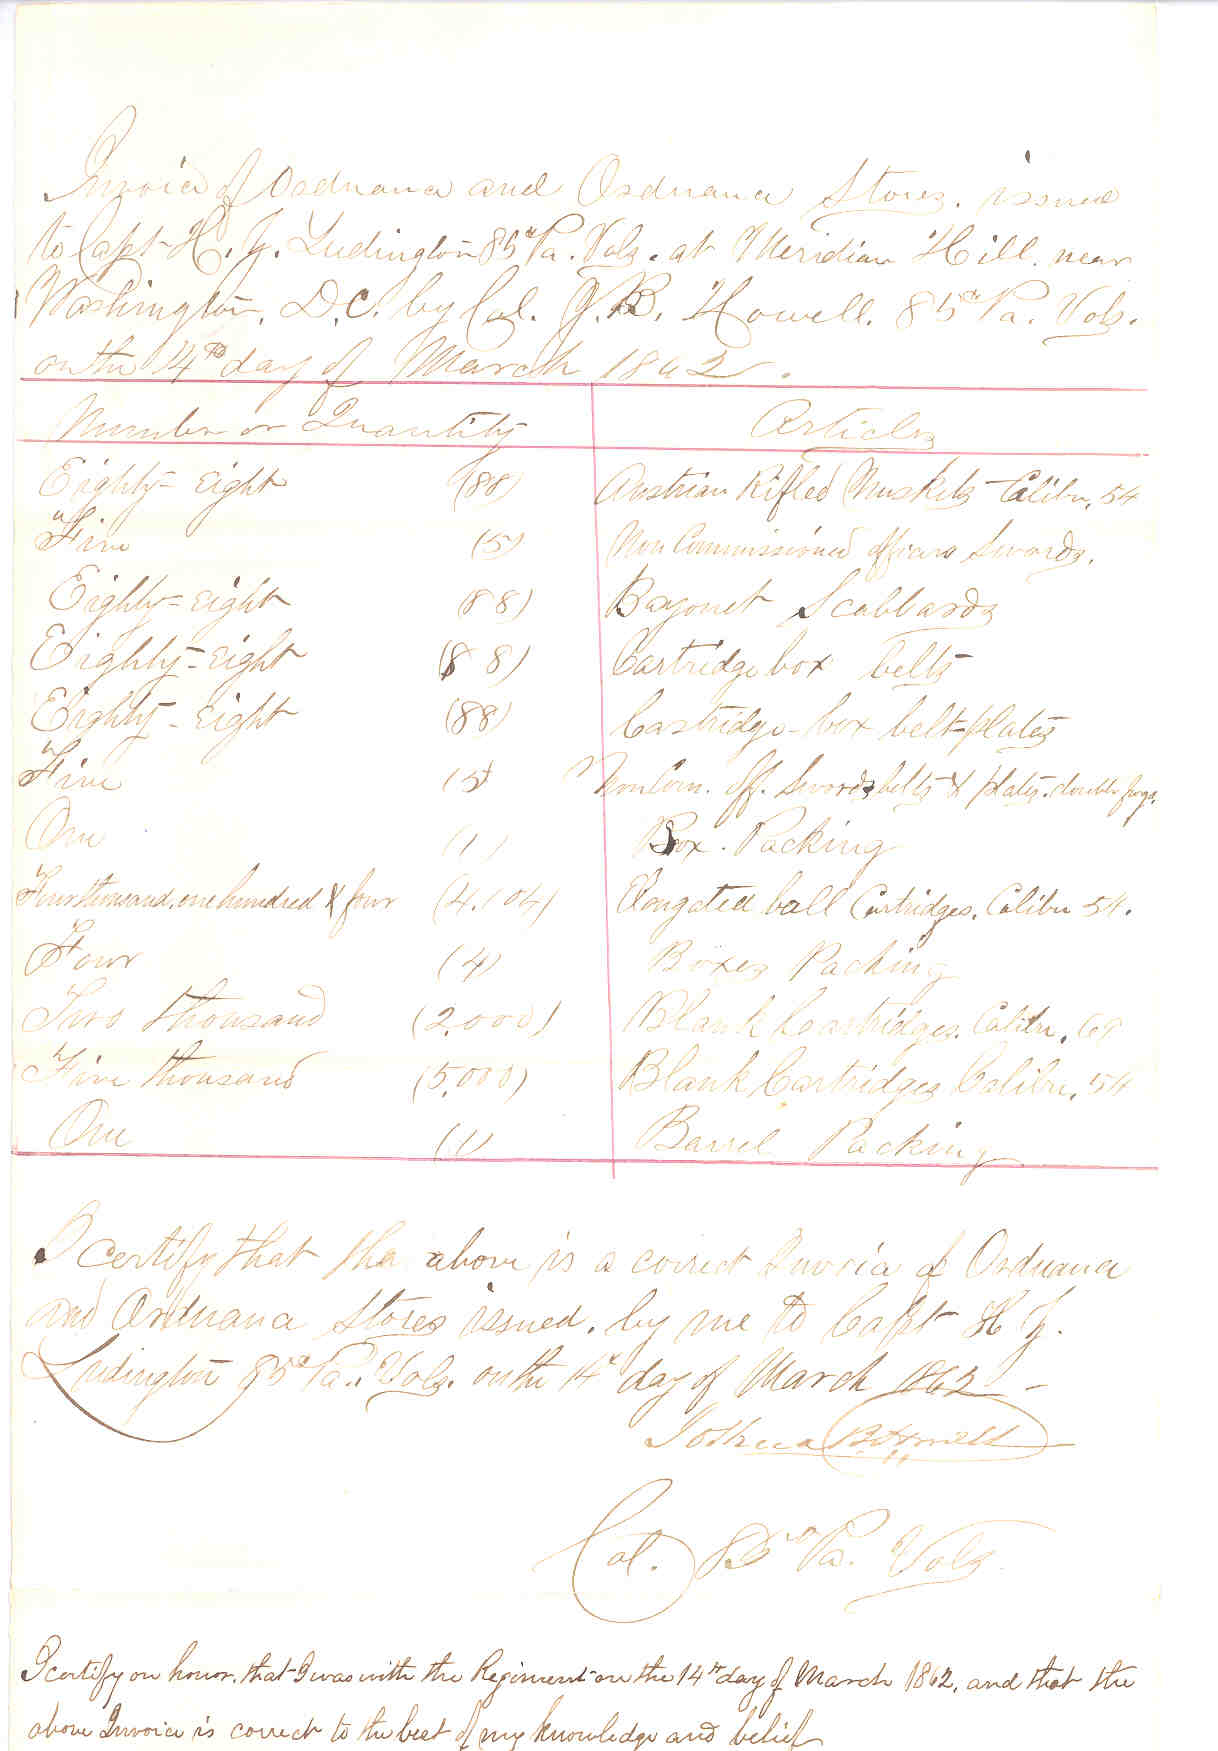 Invoice of Ordnance and Ordnance Stores. issued
to Capt H. Z. Ludington 85th Pa. Vols. at Meridian Hill. near
Washington. D.C. by Col. J. B. Howell. 85th Pa. Vols.
on the 14th day of March 1862.
Number or Quantity Articles
Eighty-eight (88) Austrian Rifled Muskets Calibre. 54
Five (5) Non Commissioned officers Swords.
Eighty-eight (88) Bayonet Scabbards
Eighty-eight (88) Cartridge box belts
Eighty-eight (88) Cartridge-box belt-plates
Five (5) Non Com. Off. Swords belts & plates. double frogs.
One (1) Box. Packing
Four thousand, one hundred & four (4.104) Elongated ball Cartridges. Calibre 54.
Four (4) Boxes Packing
Two thousand (2.000) Blank Cartridges. Calibre. 69
Five thousand (5.000) Blank Cartridges Calibre. 54
One (1) Barrel Packing
I certify that the above is a correct Invoice of Ordnance
and Ordnance Stores issued. by me to Capt H Z.
Ludington 85th Pa. Vols. on the 14th day of March 1862 -
Joshua B Howell
Col. 85th Pa. Vols.
I certify on honor. that I was with the Regiment on the 14th day of March 1862, and that the
above Invoice is correct to the best of my knowledge and belief